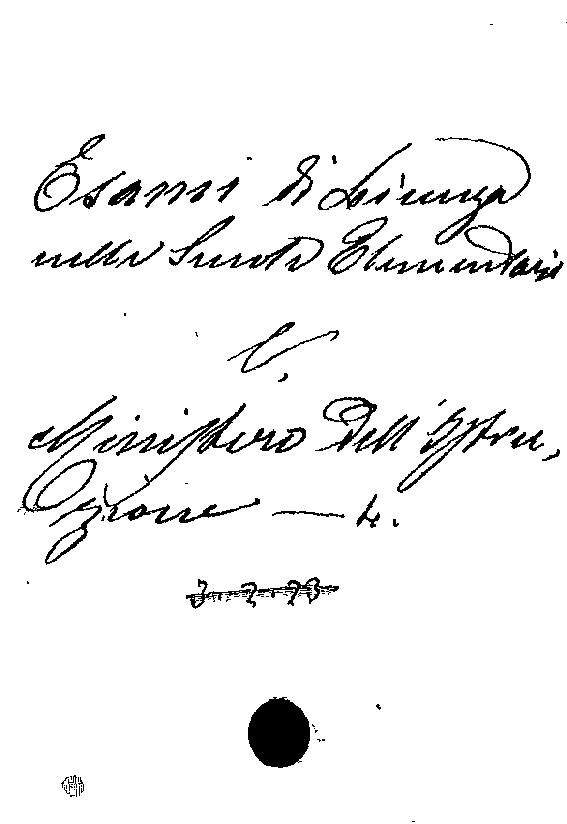 Esami di Licenza
nelle Scuole Elementari
V.
Ministero Dell'Istru,
zione — 4.